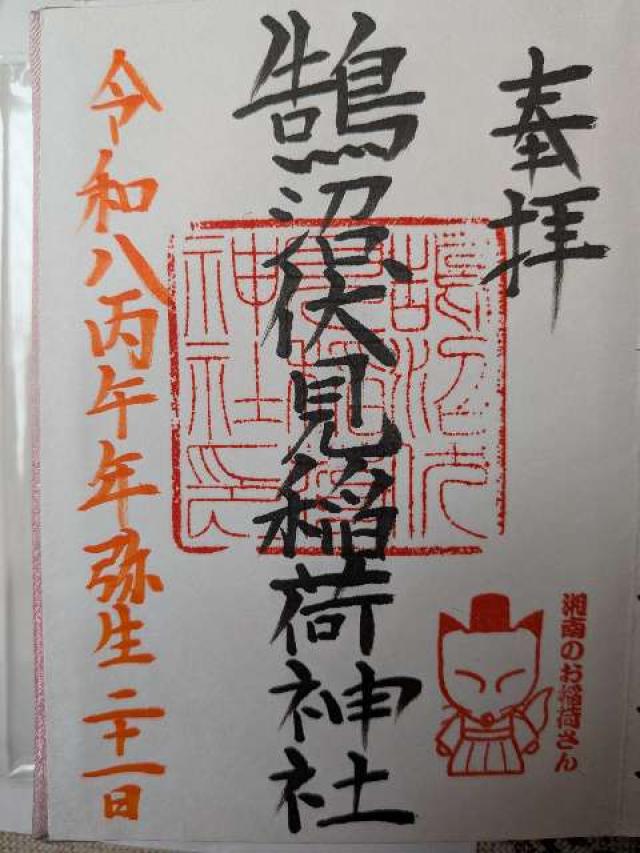 奉拝
鵠沼伏見稲荷神社
鵠沼伏
見稲荷
神社印
令和八丙午年弥生二十一日
湘南のお稲荷さん